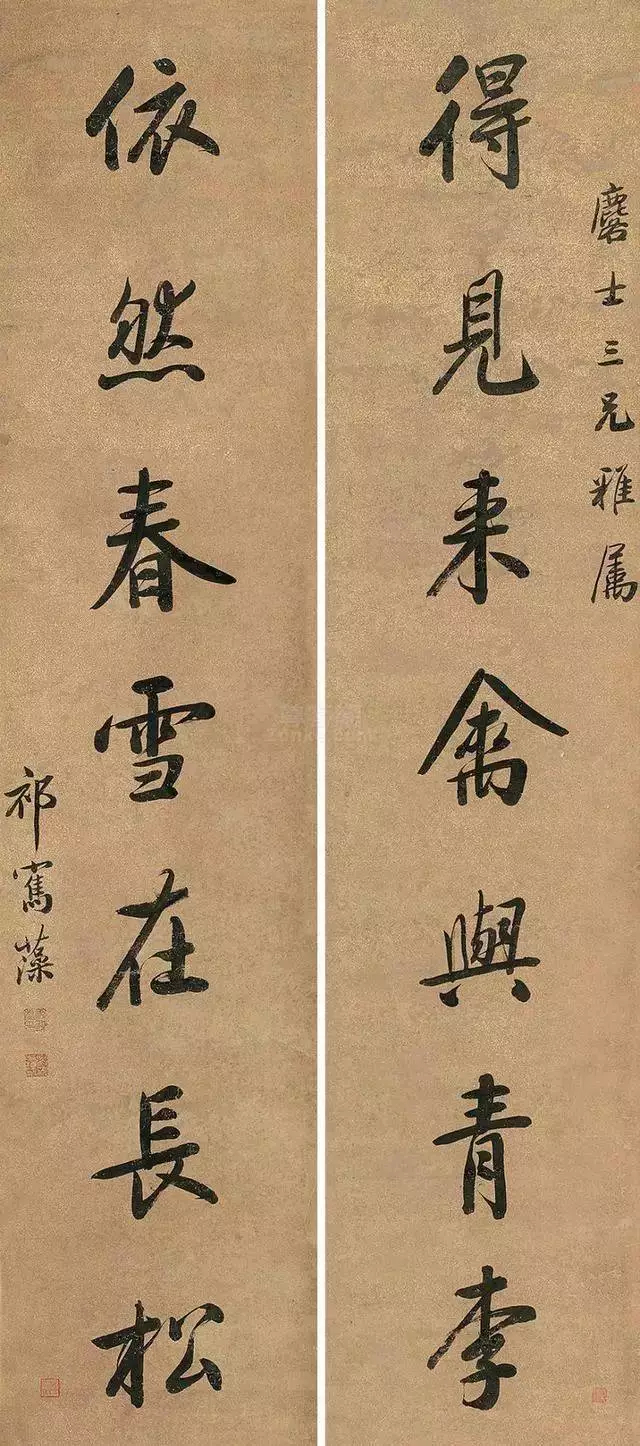 士三兄雅属
得見来禽與青李
依然春雪在長松
祁寯藻